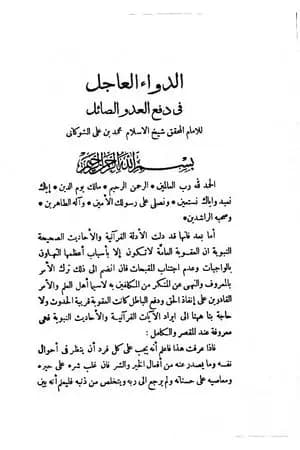 الدواء العاجل
فى دفع العدو الصائل
للامام المحقق شيخ الاسلام محمد بن على الشوكانى
بسم الله الرحمن الرحيم
الحمد لله رب العالمين • الرحمن الرحيم • مالك يوم الدين • إياك
نعبد واياك نستعين • ونصلى على رسولك الأمين • وآله الطاهرين •
وصحبه الراشدين •
أما بعد فانها قد دلت الأدلة القرآنية والأحاديث الصحيحة
النبوية ان العقوبة العامة لاتكون إلا بأسباب أعظمها التهاون
بالواجبات وعدم اجتناب المقبحات فان انضم الى ذلك ترك الأمر
بالمعروف والنهى عن المنكر من المكلفين به لاسيما أهل العلم والأمر
القادرين على إنفاذ الحق ودفع الباطل كانت العقوبة قريبة الحدوث ولا
حاجة بنا ههنا الى ايراد الآيات القرآنية والأحاديث النبوية فهى
معروفة عند المقصر والكامل :
فاذا عرفت هذا فاعلم أنه يجب على كل فرد أن ينظر فى أحوال
نفسه وما يصدر عنه من أفعال الخير والشر فان غلب شره على خيره
ومعاصيه على حسناته ولم يرجع الى ربه ويتخلص من ذنبه فليعلم أنه بين